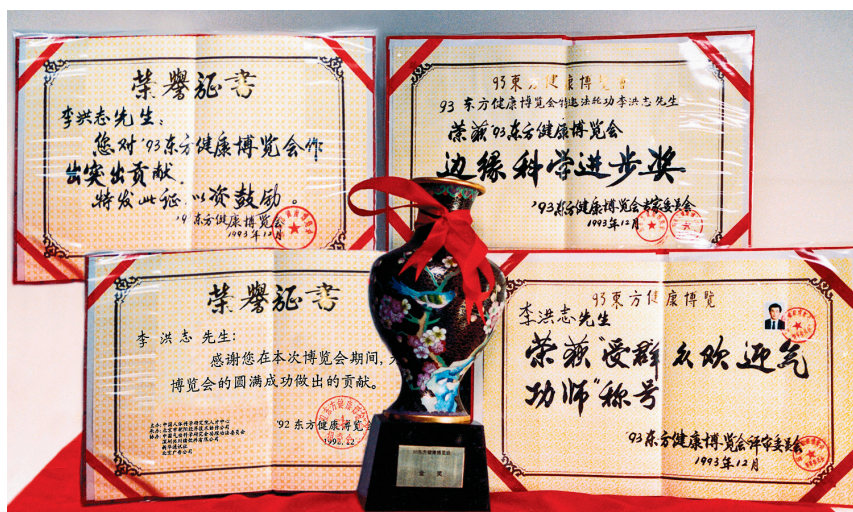 荣誉证书
李洪志先生:
您对'93东方健康博览会作
出突出贡献.
特发此证.以资鼓励。
东方健康博览会
1993年12月
93東方健康博览會
93东方健康博览会特邀法轮功李洪志先生
荣获'93东方健康博览会
边缘科学进步奖
'93东方健康博览会专家委员会
1993年12月
荣誉证书
李洪志先生:
感谢您在本次博览会期间,
博览会的圆满成功做出的贡献。
'92东方健康博览会
1992.12
93東方健康博览
李洪志先生
荣获"受群众欢迎气
功师"称号
'93东方健康博览会评审委员会
1993年12月
93东方健康博览会
金奖